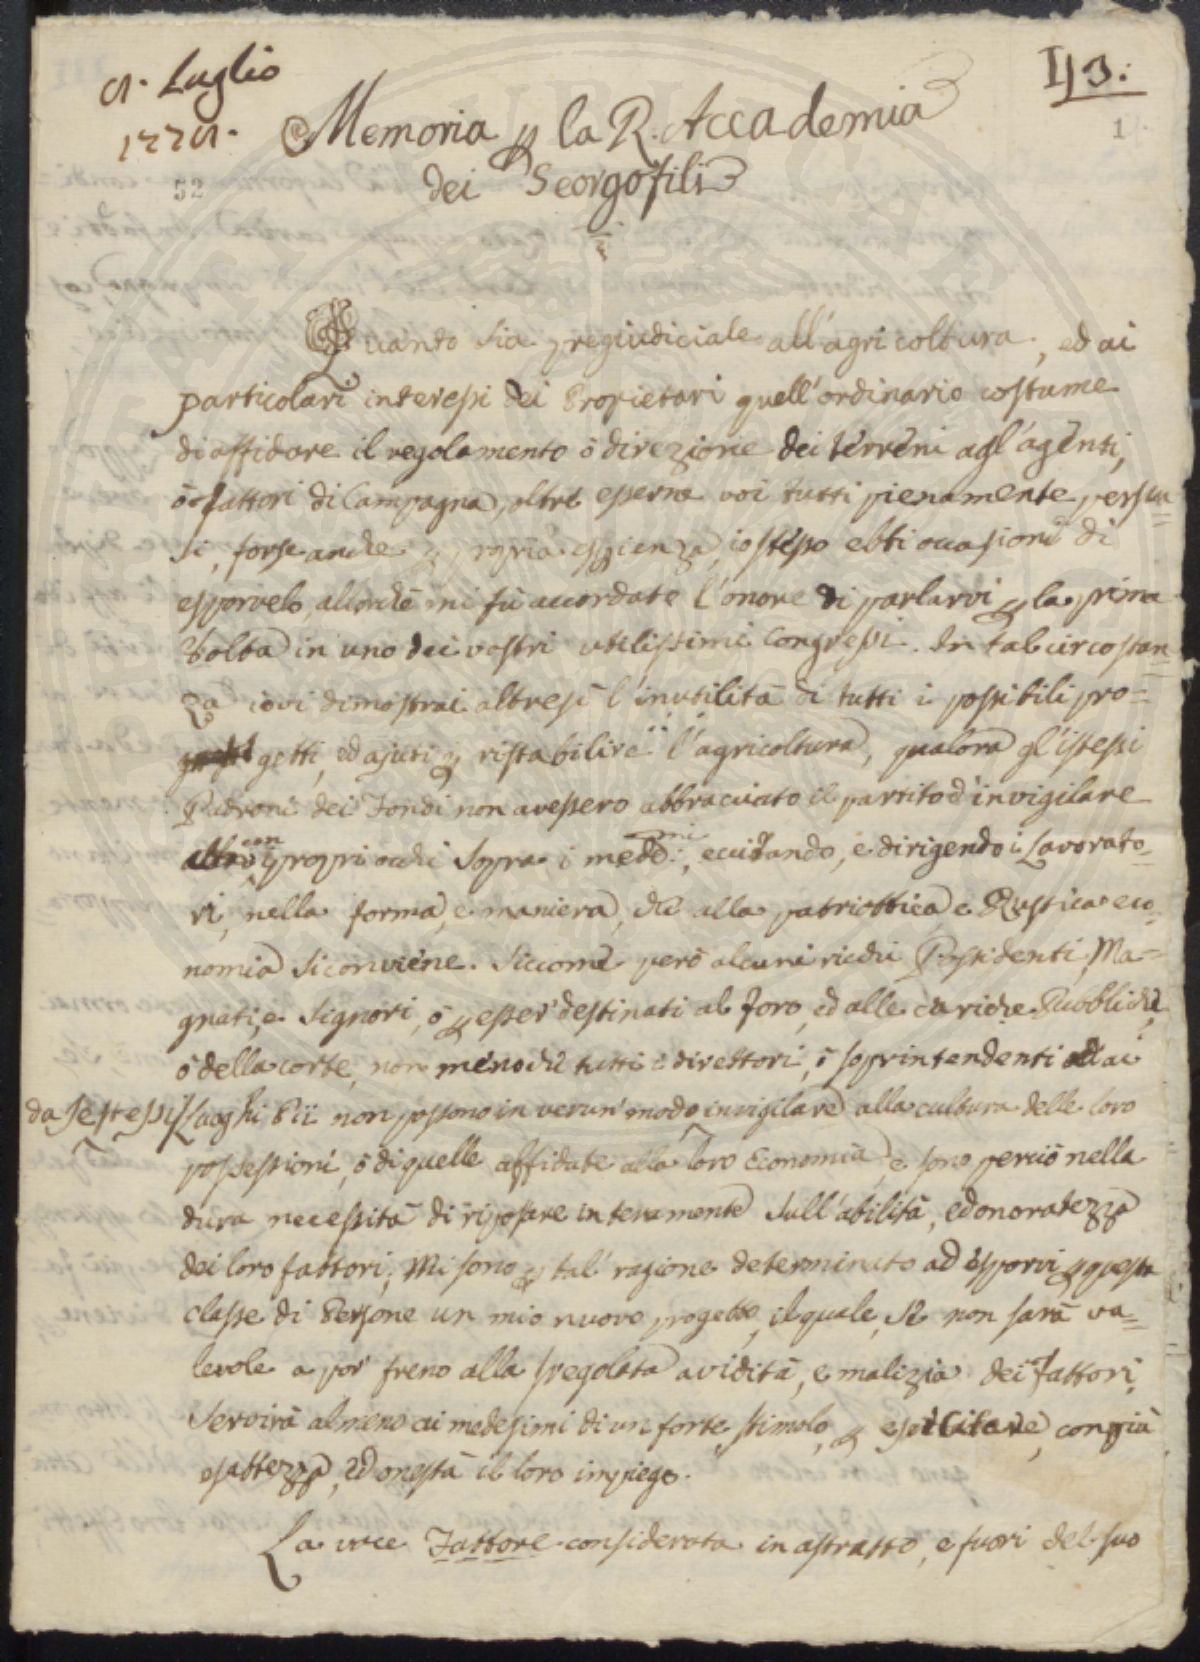 5. Luglio
1775.
113.
1
52
Memoria p la R. Accademia
dei Georgofili
Quanto sia pregiudiciale all'agricoltura, ed ai
particolari interessi dei Proprietari quell'ordinario costume
di affidare il regolamento ò direzione dei terreni agl'agenti,
ò fattori di Campagna, oltre esserne voi tutti pienamente persua=
si, forse anche p propria esperienza, io stesso ebbi occasione di
esporvelo, allorchè mi fù accordato l'onore di parlarvi p la prima
volta in uno dei vostri utilissimi Congressi. In tal circostan=
za io vi dimostrai altresì l'inutilità di tutti i possibili pro=
getti, ed ajuti p ristabilire l'agricoltura, qualora gl'istessi
Padroni dei Fondi non avessero abbracciato il partito d'invigilare
con i proprj occhi sopra i medmi, eccitando, e dirigendo i Lavorato=
ri, nella forma, e maniera, che alla patriottica e Rustica eco=
nomia si conviene. Siccome però alcuni ricchi Possidenti, Ma=
gnati, e Signori, ò p esser destinati al Foro, ed alle cariche Pubbliche,
ò della corte, non meno che tutti i direttori, ò soprintendenti ai
da se stessi Luoghi Pii non possono in verun modo invigilare alla cultura delle loro
possessioni, ò di quelle affidate alla loro Economia, e sono perciò nella
dura necessità di riposare interamente sull'abilità, ed onoratezza
dei loro fattori; Mi sono p tal ragione determinato ad esporvi p questa
classe di Persone un mio nuovo progetto, il quale, se non sarà va=
levole a por freno alla sregolata avidità, e malizia dei Fattori,
Servirà almeno ai medesimi di un forte stimolo, p esercitare, con più
esattezza, ed onestà il loro impiego.
La voce Fattore considerata in astratto, e fuori del suo